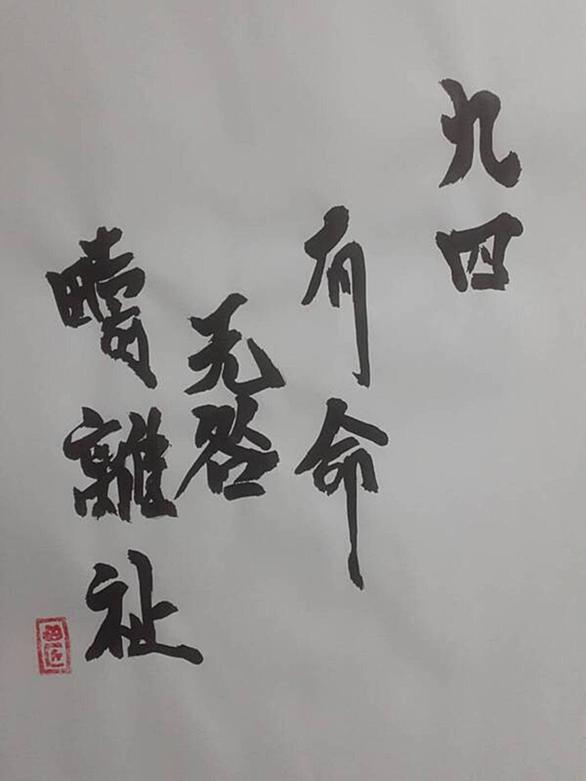 九四
有命
无咎
疇離祉